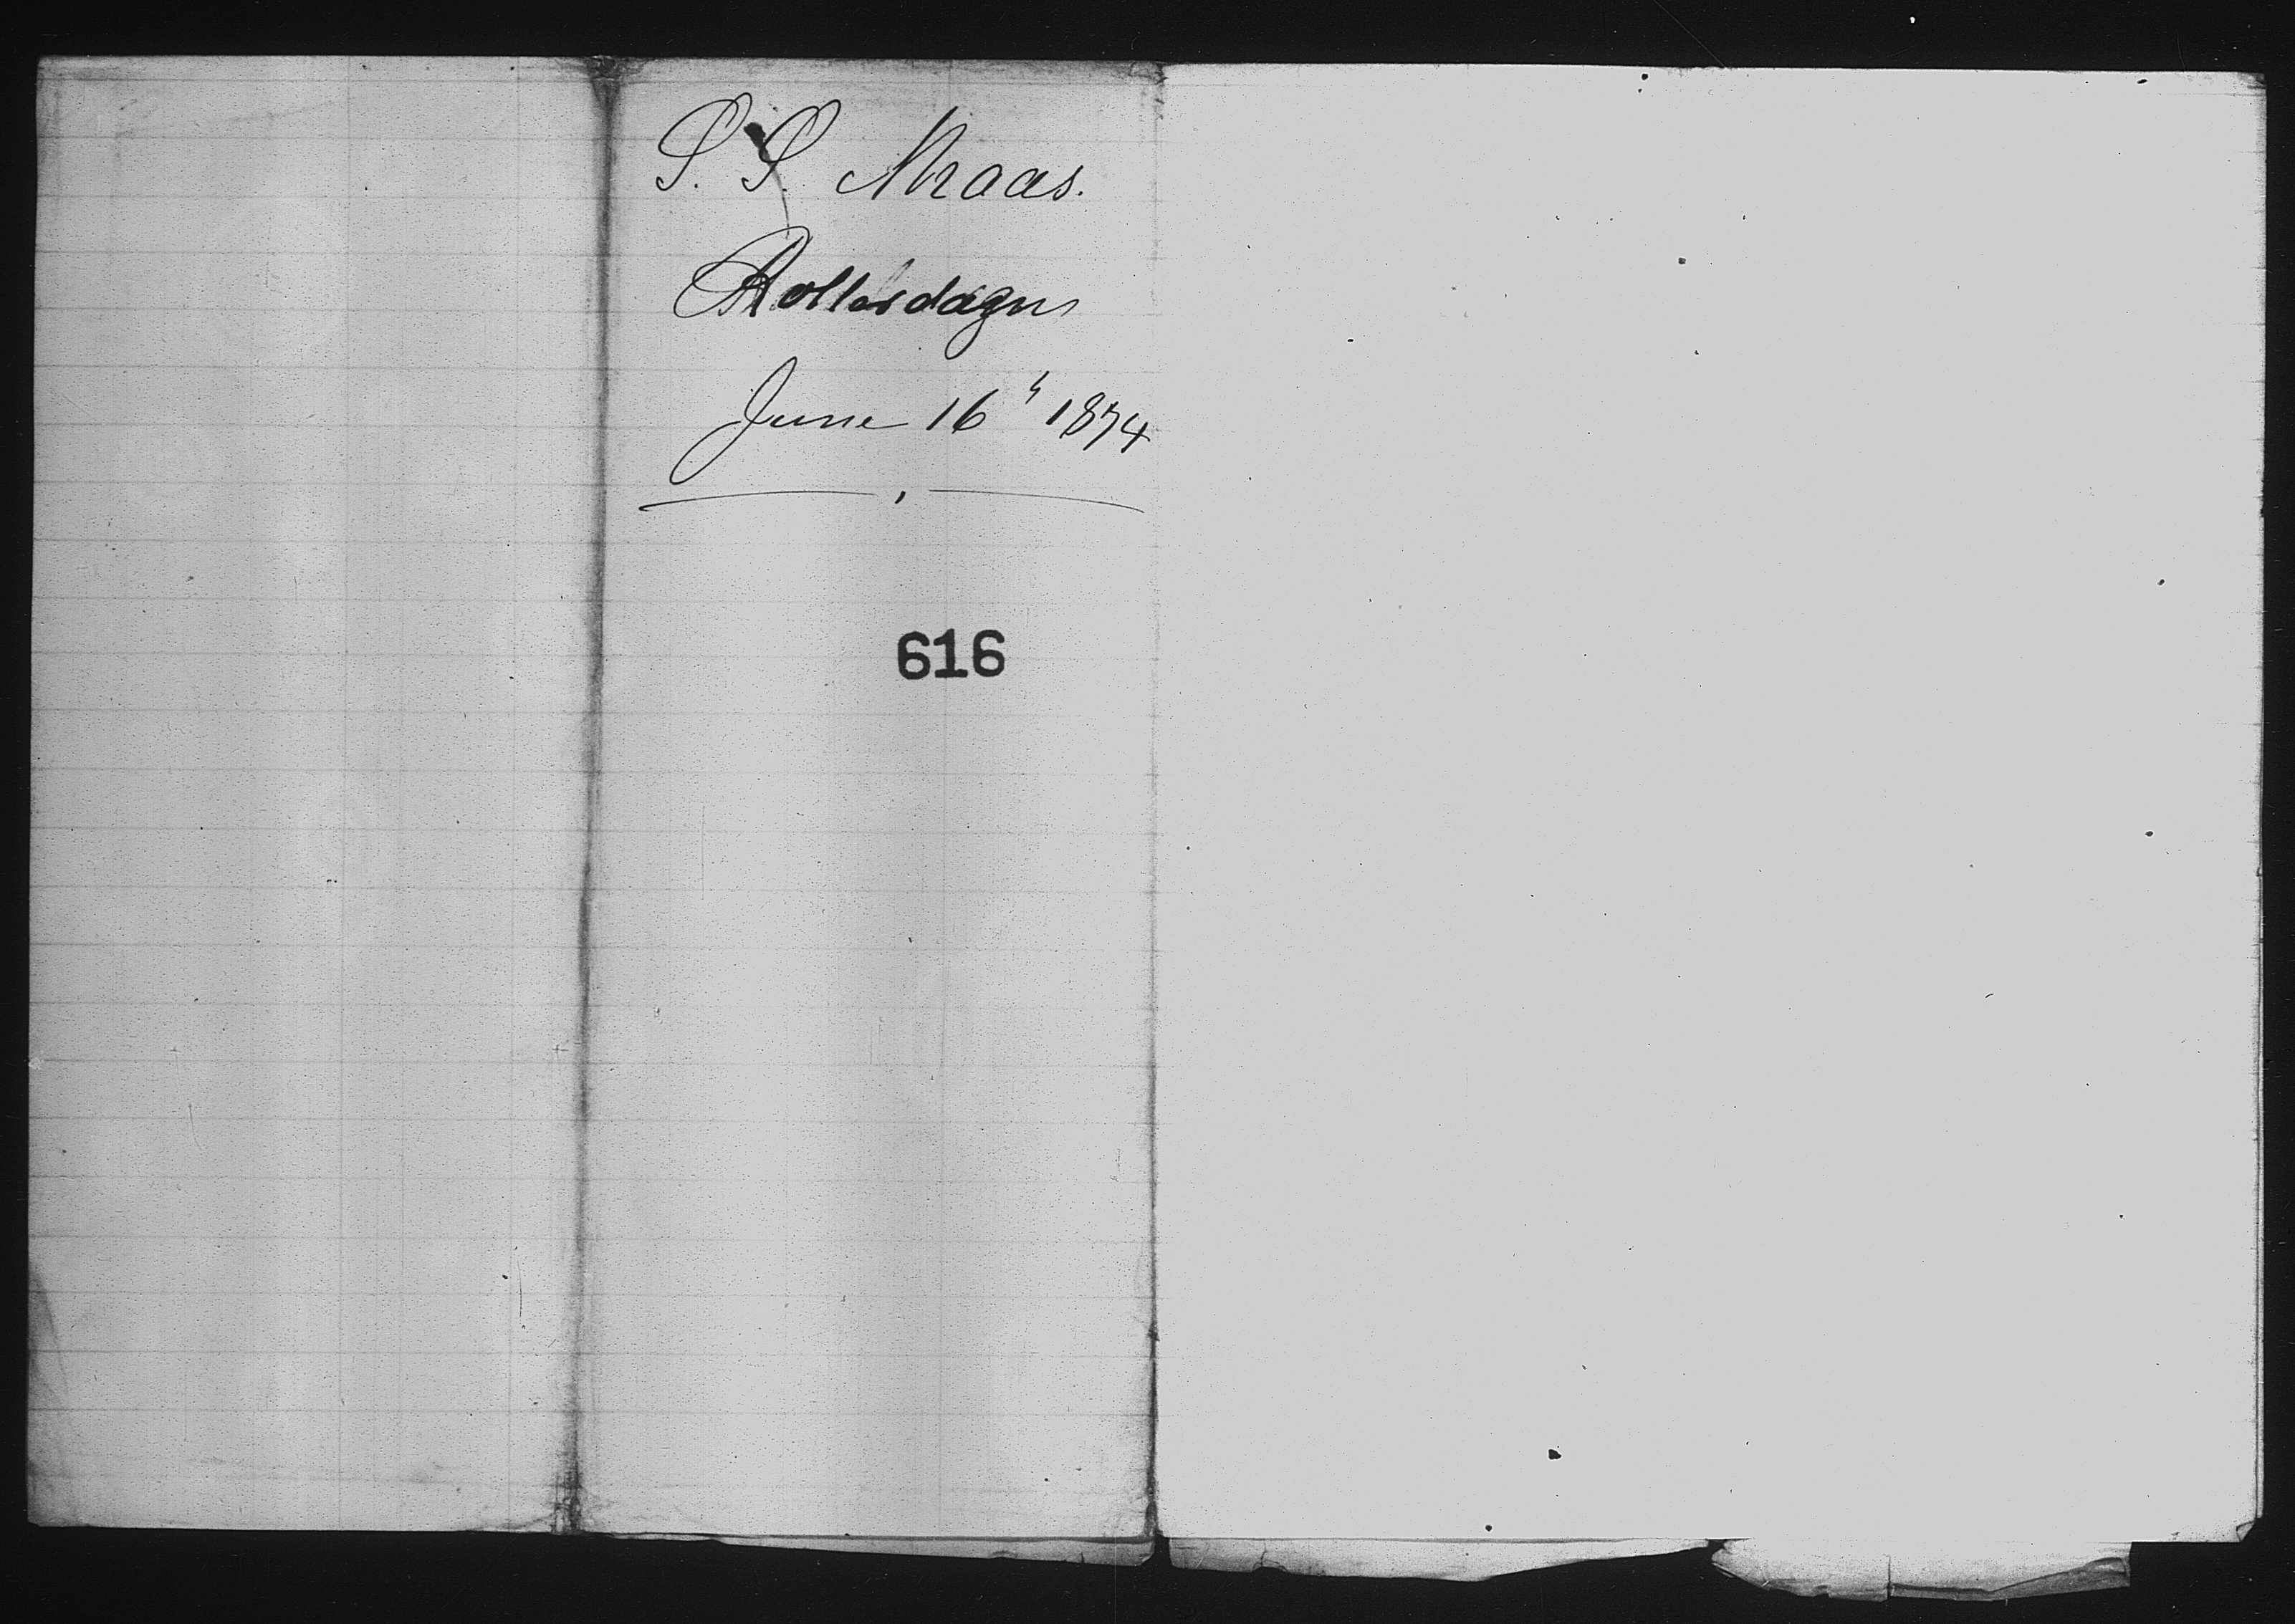 S. S. Maas.
Rotterdam
June 16th 1874
616